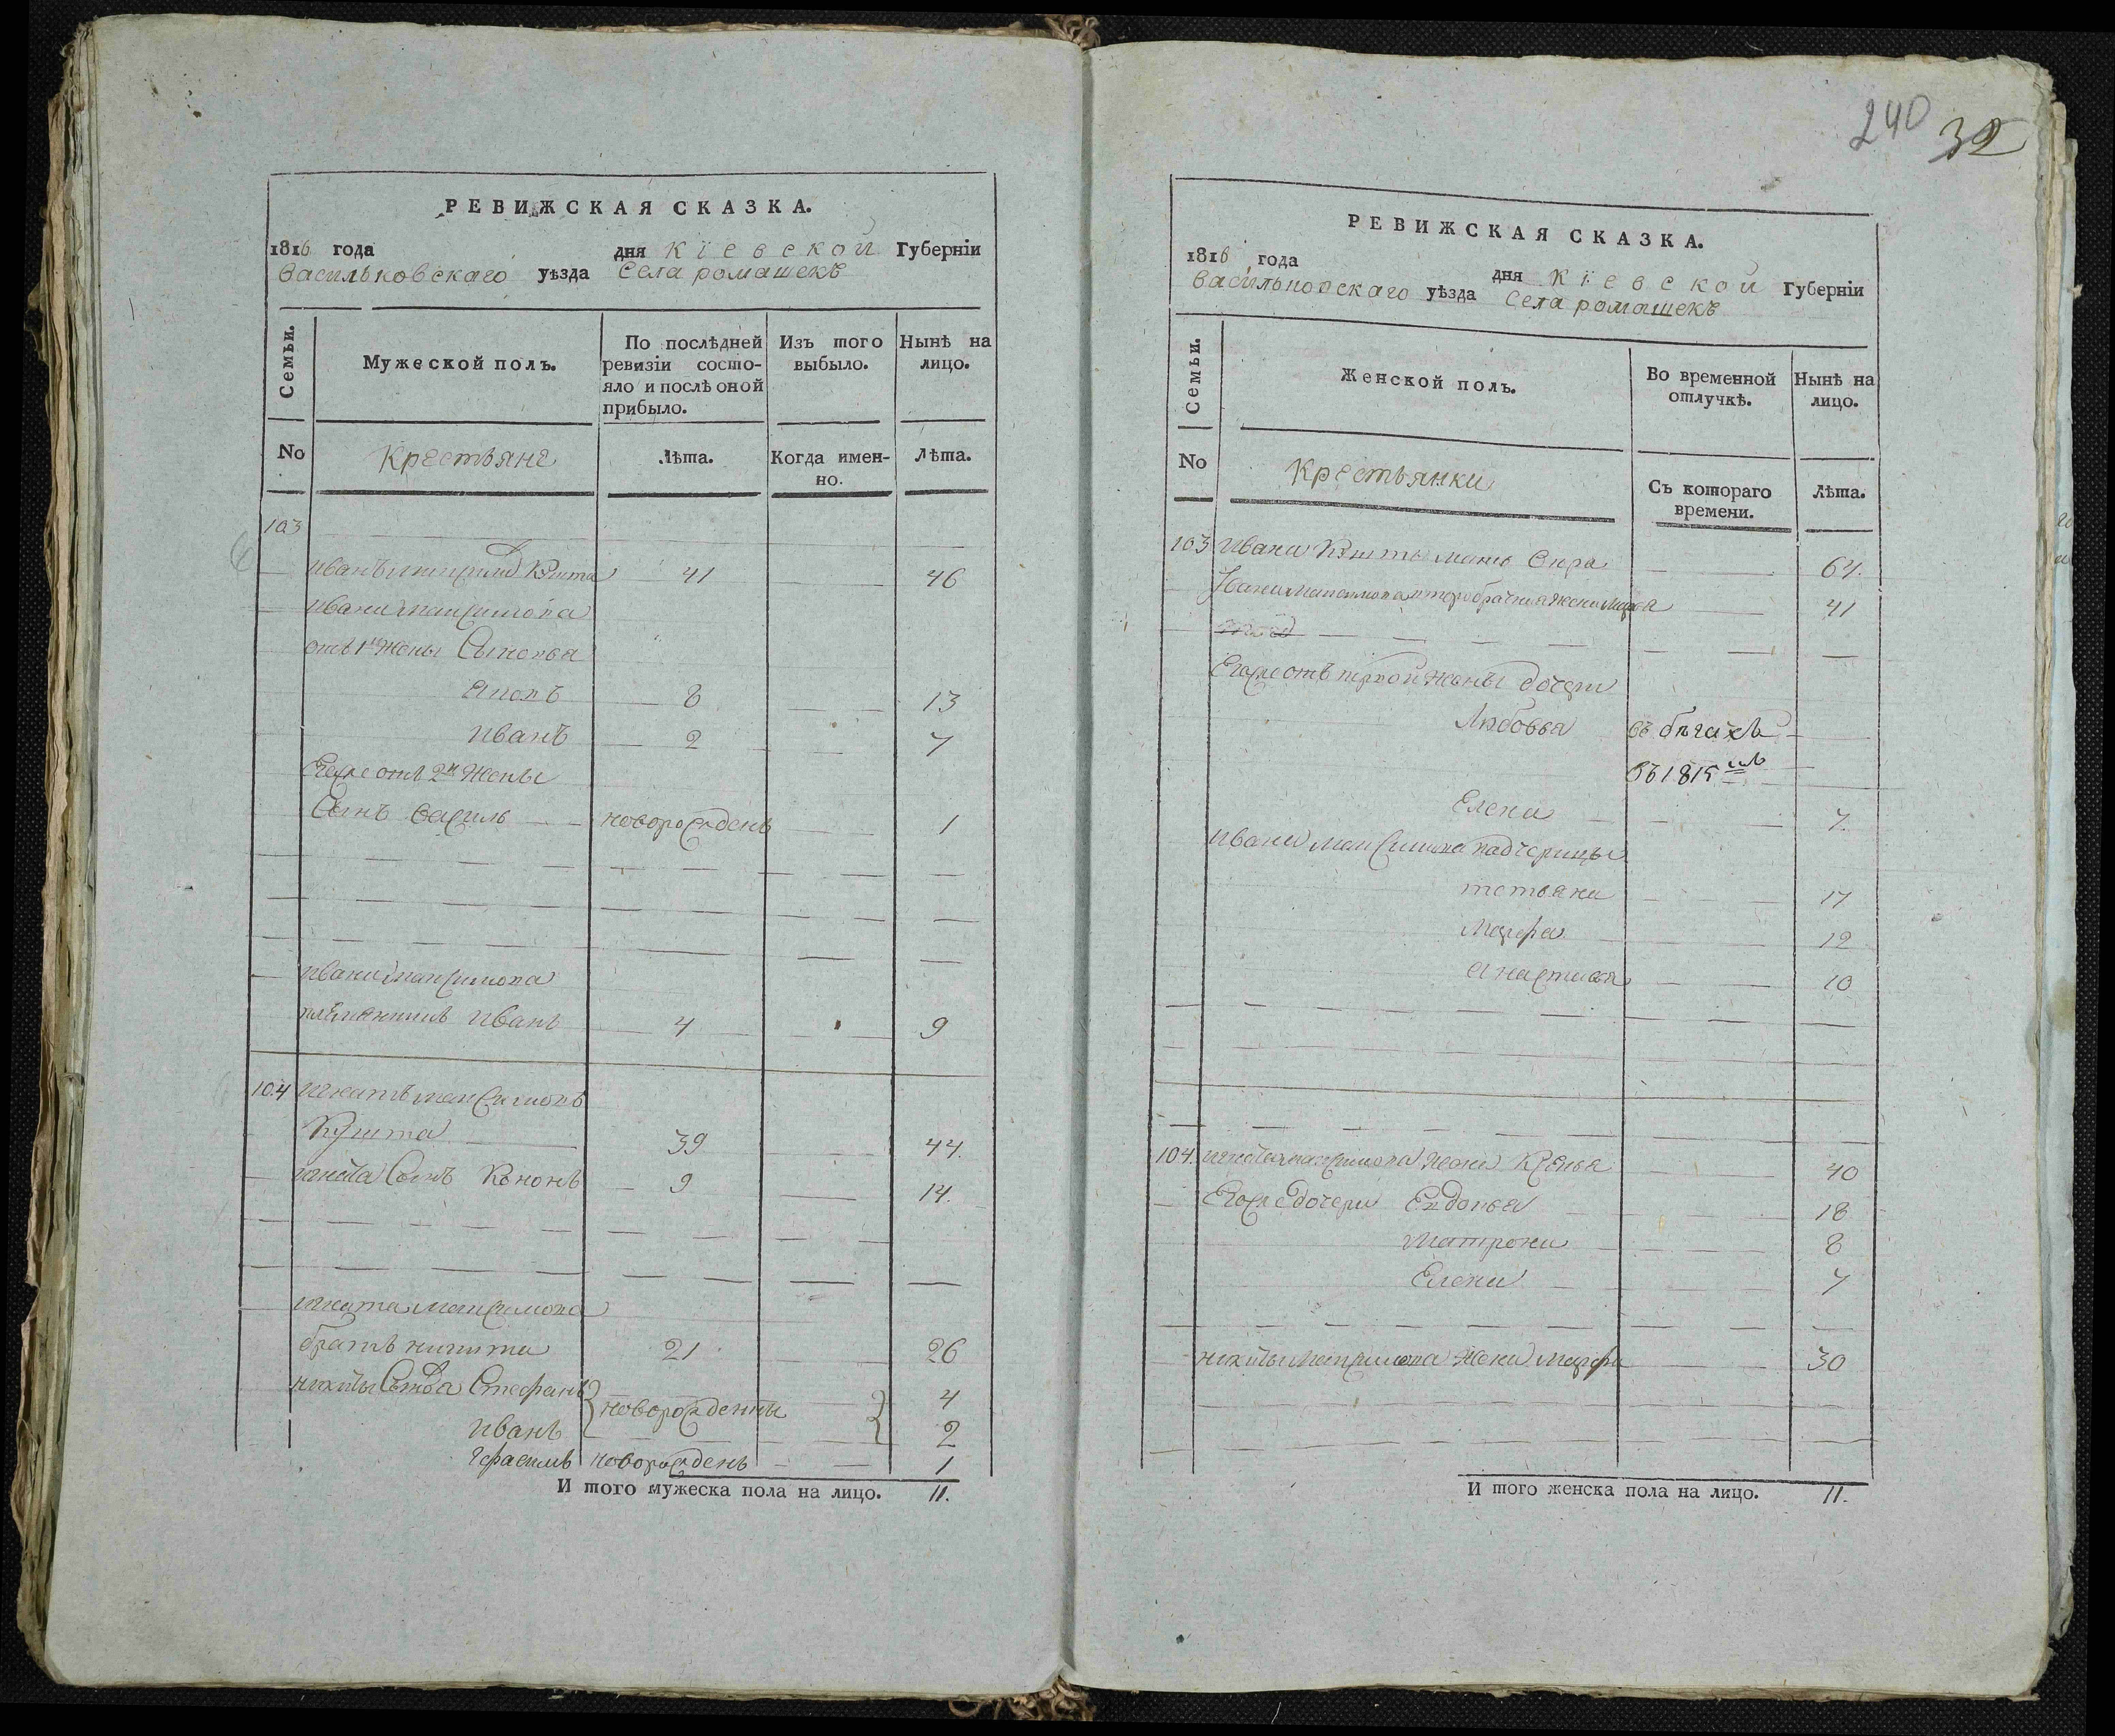 РЕВИЖСКАЯ СКАЗКА.
1816 года дня Кіевской Губерніи
Васильковского уѣзда Села ромашекъ
Семьи.
Мужеской полъ.
По послѣдней ревизіи состо-
яло и послѣ оной
прибыло.
Изъ того
выбыло.
Нынѣ на
лицо.
No Крестьяне Лѣта. Когда имен-
но. Лѣта.
103
Иванъ Кушта 41 46
Ивана Максимова
отъ 1й жены Сыновья
8 13
Иванъ 2 7
Егоже отъ 2й жены
Сынъ Василь новорожденъ 1
Ивана Максимова
племянникъ Иванъ 4 9
104 Игнатъ Максимовъ
Кушта 39 44.
Игната Сынъ Кононъ 9 14.
Игната Максимова
братъ никита 21 26
никиты Стефанъ новорожденны 4
Иванъ 2
Герасимъ новорожденъ 1
И того мужеска пола на лицо. 11.
240 32
РЕВИЖСКАЯ СКАЗКА.
1816 года дня Кіевской Губерніи
Васильковского уѣзда Села ромашекъ
Семьи.
Женской полъ.
Во временной
отлучкѣ.
Нынѣ на
лицо.
No Крестьянки Съ котораго
времени. Лѣта.
103 Ивана Кушты мать 64.
Ивана Максимова второбрачная жена 41
Егоже отъ первой жены дочери
Любовья въ бѣгахъ
въ 1815мъ
Елена 7.
Ивана Максимова падчерицы
татьяна 17
Марфа 12
Анастасья 10
104. Игната Максимова жена 40
Егоже дочери Евдокья 18
Матрона 8
Елена 7
никиты Максимова жена Марфа 30
И того женска пола на лицо. 11.